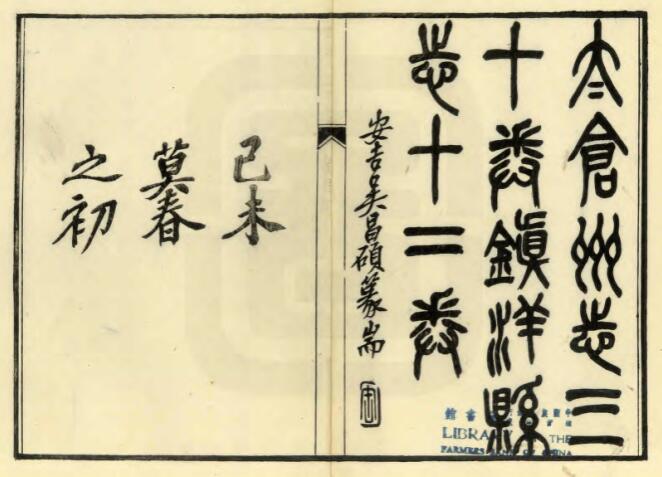 太倉州志三
十卷鎮洋縣
志十二卷
安吉吳昌碩篆耑
己未
莫春
之初
LIBRARY THE
FARMERS BANK OF CHINA